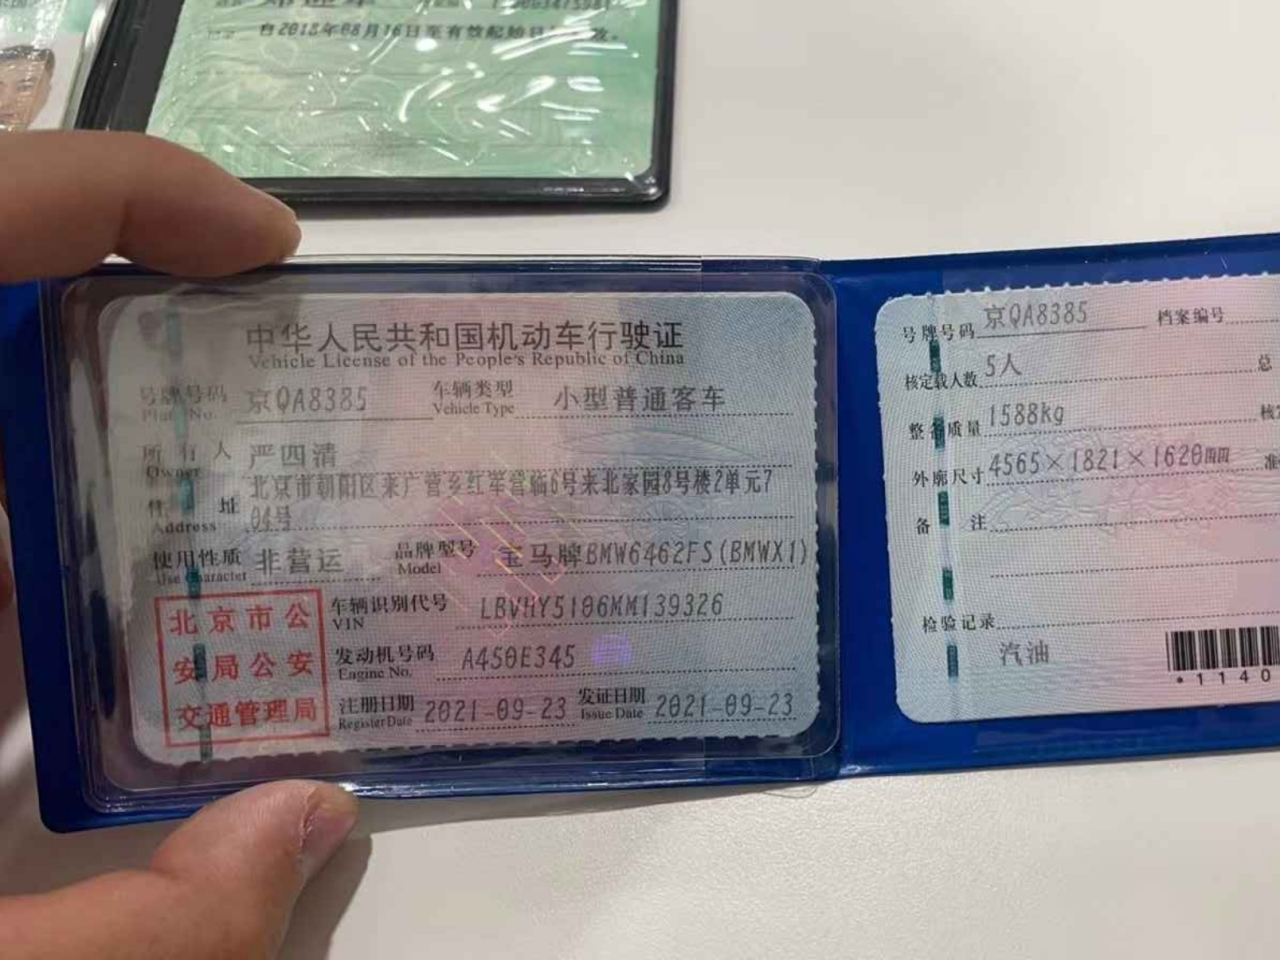 自2018年08月16日至有效起始日
中华人民共和国机动车行驶证
Vehicle License of the People's Republic of China
号牌号码 京QA8385 车辆类型 小型普通客车
Plate No. Vehicle Type
所有人 严四清
Owner
住址 北京市朝阳区来广营乡红军营临6号来北家园8号楼2单元7
Address 04号
使用性质 非营运 品牌型号 宝马牌BMW6462FS(BMWX1)
Use Character Model
北京市公
安局公安
交通管理局
车辆识别代号 LBVHY5106MM139326
VIN
发动机号码 A450E345
Engine No.
注册日期 2021-09-23 发证日期 2021-09-23
Register Date Issue Date
号牌号码 京QA8385 档案编号
核定载人数 5人 总
整备质量 1588kg 核
外廓尺寸 4565×1821×1620mm 准
备注
检验记录
汽油
*1140